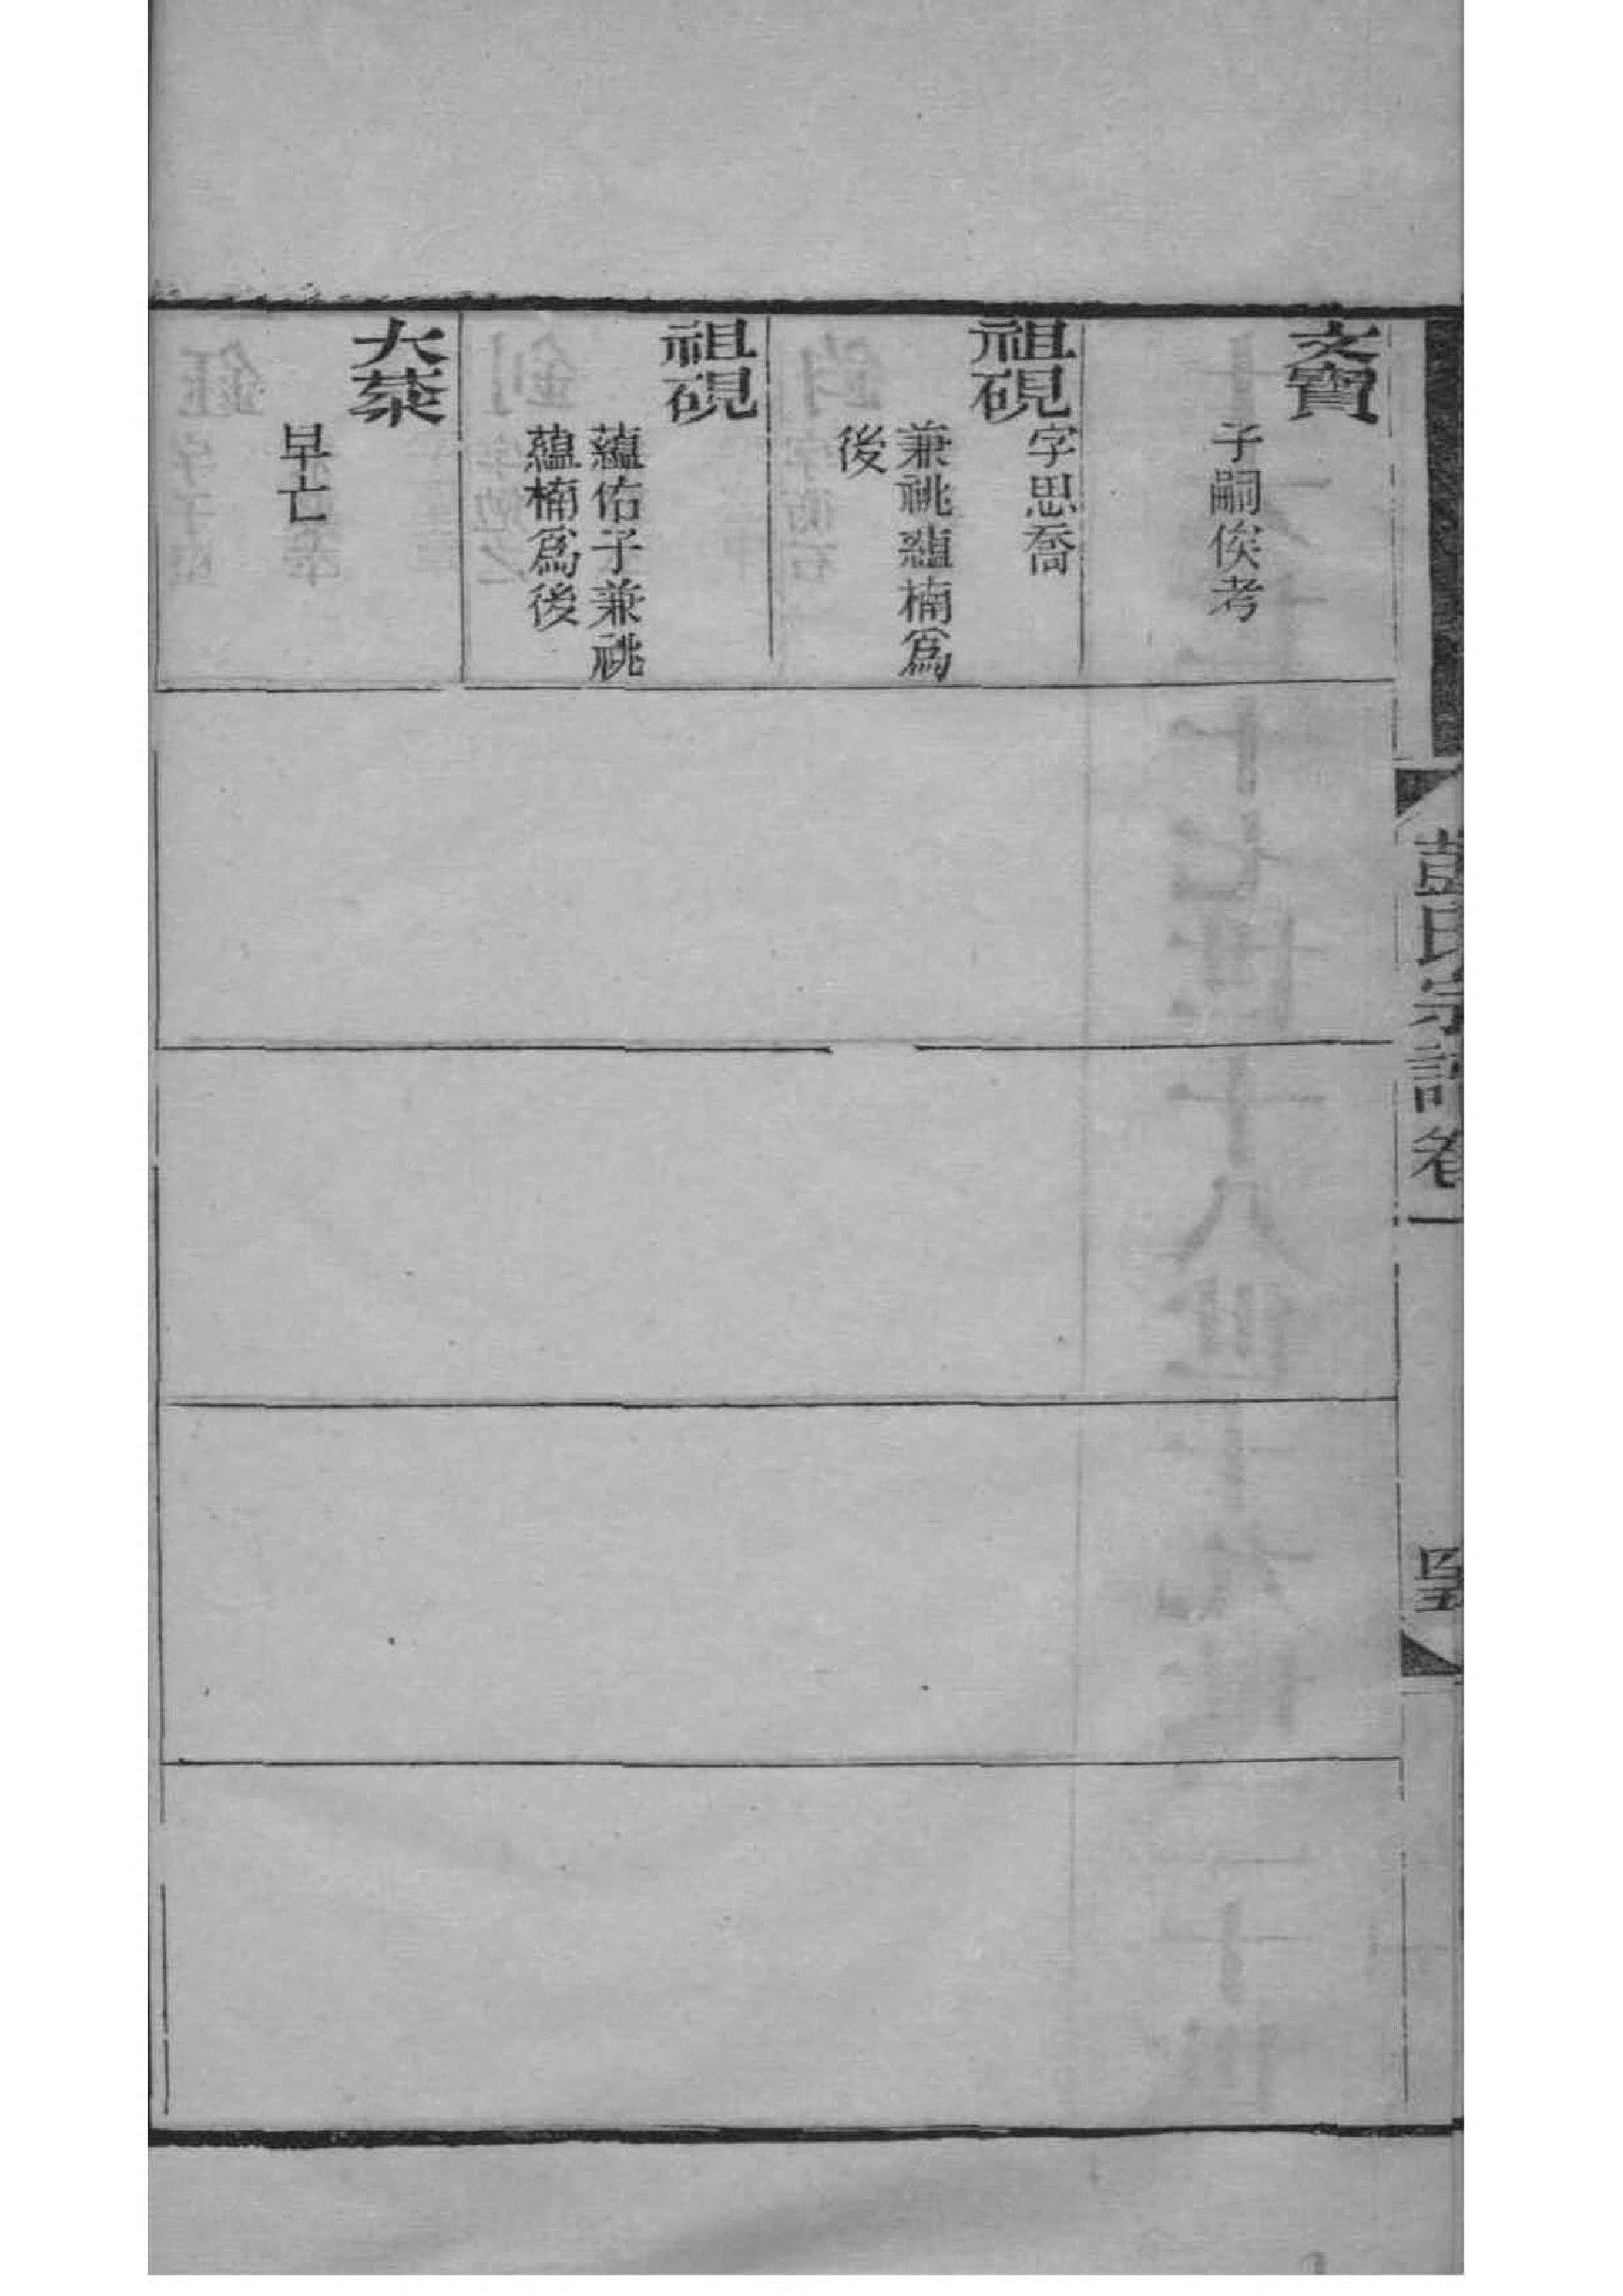 文寶
子嗣俟考
祖硯
字思喬
兼祧蘊楠爲
後
祖硯
蘊佑子兼祧
蘊楠爲後
大蔡
早亡
彭氏宗譜卷一